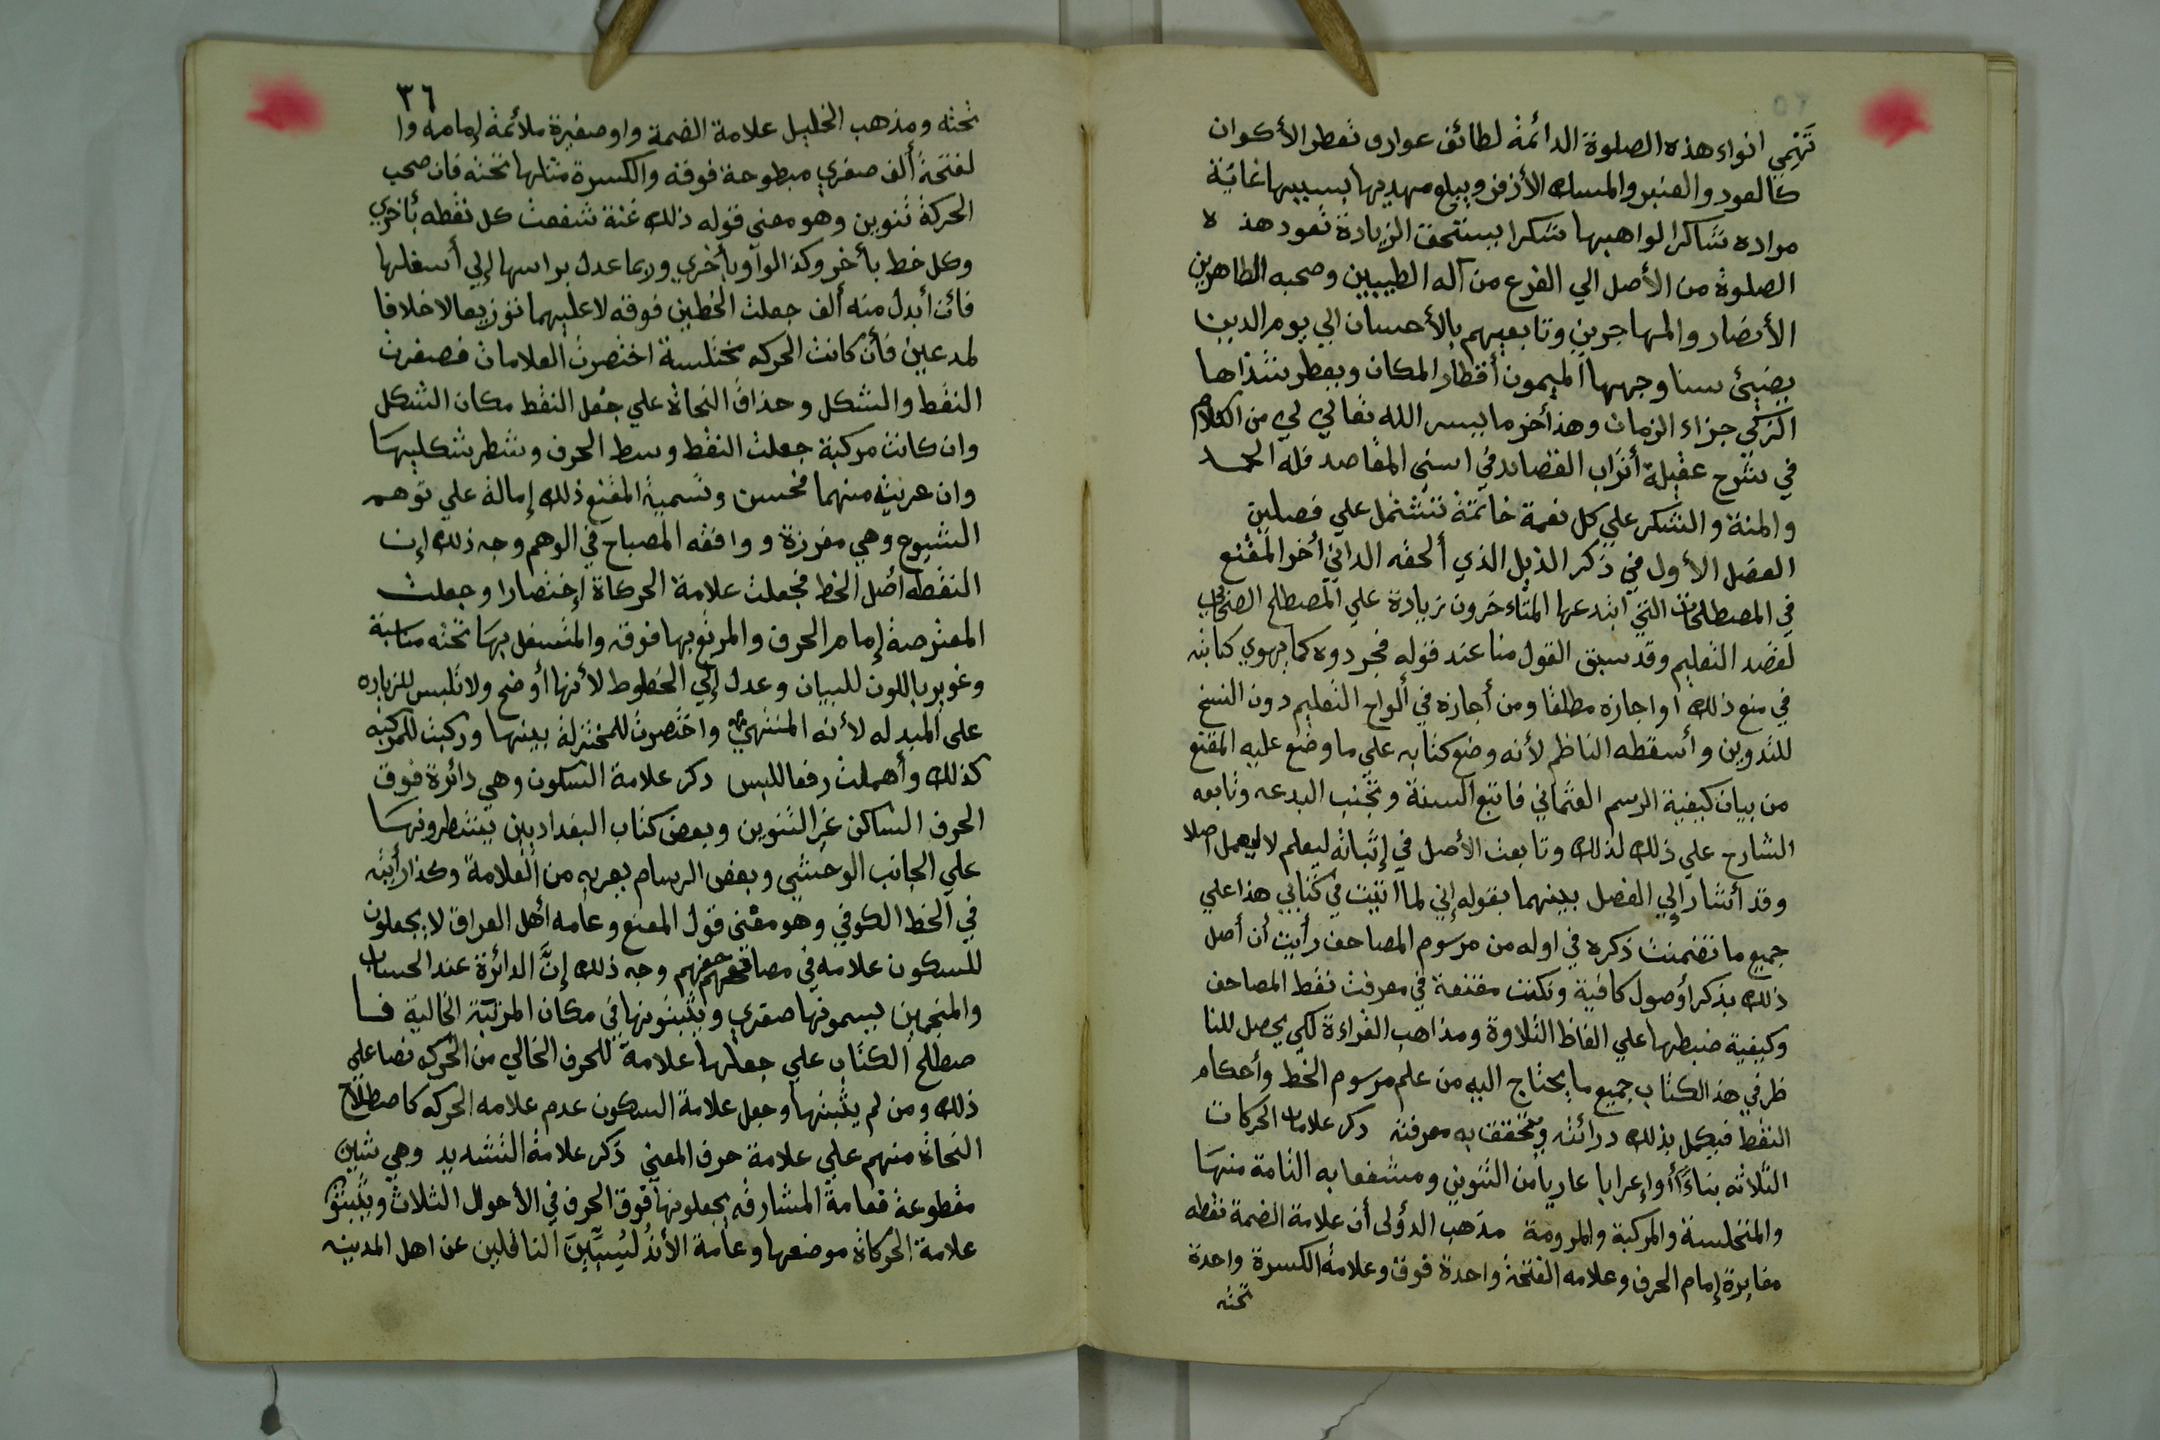 تَهْمِي انواء هذه الصلوة الدائمة لطائف عوارف تعطر الأكوان
كالعود والعنبر والمسك الأزفر ويبلغ مهديها بسببها غاية
مراده شاكرا لواهبها شكرا يستحق الزيادة تعود هذه
الصلوة من الأصل الي الفرع من آله الطيبين وصحبه الطاهرين
الأنصار والمهاجرين وتابعيهم بالأحسان الي يوم الدين
يضيئ سنا وجهها الميمون أقطار المكان ويعطر شذاها
الزكي جزاء الزمان وهذ أخر ما يسر الله تعالي لي من الكلام
في شرح عقيلة أتراب القصائد في اسني المقاصد فله الحمد
والمنة والشكر علي كل نعمة خاتمة تشتمل علي فصلين
الفصل الأول في ذكر الذيل الذي ألحقه الداني أخر المقنع
في المصطلحات التي ابتدعها المتاءخرون زيادة علي المصطلح الصحابي
لقصد التعليم وقد سبق القول منا عند قوله فجردوه كما يهوي كتابته
في منع ذلك او اجازه مطلقا ومن أجازه في ألواح التعليم دون النسخ
للتدوين وأسقطه الناظم لأنه وضع كتابه علي ما وضع عليه المقنع
من بيان كيفية الرسم العثماني فاتبع السنة وتجنب البدعه وتابعه
الشارح علي ذلك لذلك وتابعت الأصل في إثباته ليعلم لا ليعمل اصلا
وقد أشار إلي الفصل بينهما بقوله إني لما اتيت في كتابي هذا علي
جميع ما تضمنت ذكره في اوله من مرسوم المصاحف رأيت أن أصل
ذلك بذكر أوصول كافية ونكت مقنعة في معرفت نقط المصاحف
وكيفية ضبطها علي الفاظ التلاوة ومذاهب القراءة لكي يحصل للنا
ظر في هذ الكتاب جميع ما يحتاج اليه من علم مرسوم الخط وأحكام
النقط فيكمل بذلك درائته ويتحقق به معرفته ذكر علامات الحركات
الثلاثه بناءً أوإعرابا عاريا من التنوين ومشفعا به التامة منها
والمتخلسة والمركبة والمرومة مذهب الدؤلى أن علامة الضمة نقطه
مغايرة إمام الحرف وعلامه الفتحة واحدة فوق وعلامة الكسرة واحدة
تحته
٣٦
تحته ومذهب الخليل علامة الضمة واو صغيرة ملائمة إمامه وا
لفتحة ألف صغري مبطوحة فوقه والكسرة مثلها تحته فان صحب
الحركة تنوين وهو معني قوله ذلك غنة شفعت كل نقطه بأخري
وكل خط بأخر وكذ الواو بأخري وربما عدل براسها إلي أسفلها
فائن أبدل منه ألف جعلت الخطين فوقه لا عليهما توزيعا لا خلافا
لمدعين فأن كانت الحركه مختلسة اختصرت العلامات فصغرت
النقط والشكل وحذاق النحاة علي جعل النقط مكان الشكل
وان كانت مركبة جعلت النقط وسط الحرف وشطر شكليهَا
وان عريته منهما فحسن وتسمية المقنع ذلك إمالة علي توهم
الشيوع وهي مفرزة ووافقه المصباح في الوهم وجه ذلك إن
النقطه اصل الخط فجعلت علامة الحركاة إختصارا وجعلت
المعترضة إمام الحرف والمرتفع بها فوقه والمتسفل بهَا تحته مناسبة
وغوير باللون للبيان وعدل إلي الخطوط لأنها أوضح ولا تلبس للزياده
على المبدله لأنه المنتهي واختصرت للمختزلة بينها وركبت للمركبه
كذلك وأهملت رفعا للبس ذكر علامة السكون وهي دائرة فوق
الحرف الساكن غير التنوين وبعض كتاب البغداديين يشطرونهَا
علي الجانب الوحشي وبعض الرسام يعربه من العلامة وكذا رأيته
في الخط الكوفي وهو معني قول المقنع وعامه أهل العراق لا يجعلون
للسكون علامه في مصاحفهم وجه ذلك إنَّ الدائرة عند الحساب
والمنجمين يسمونها صفري ويثبتونها في مكان المرتبة الخالية فا
صطلح الكتاب علي جعلها علامة للحرف الخالي من الحركه نصا علي
ذلك ومن لم يثبتها وجعل علامة السكون عدم علامه الحركه كاصطلاح
النحاة منهم علي علامة حرف المعني ذكر علامة التشديد وهي شين
مقطوعة فعامة المشارقه يجعلونها فوق الحرف في الأحوال الثلاث ويثبتون
علامة الحركاة موضعها وعامة الأندُلُسِيِّينَ الناقلين عن اهل المدينه